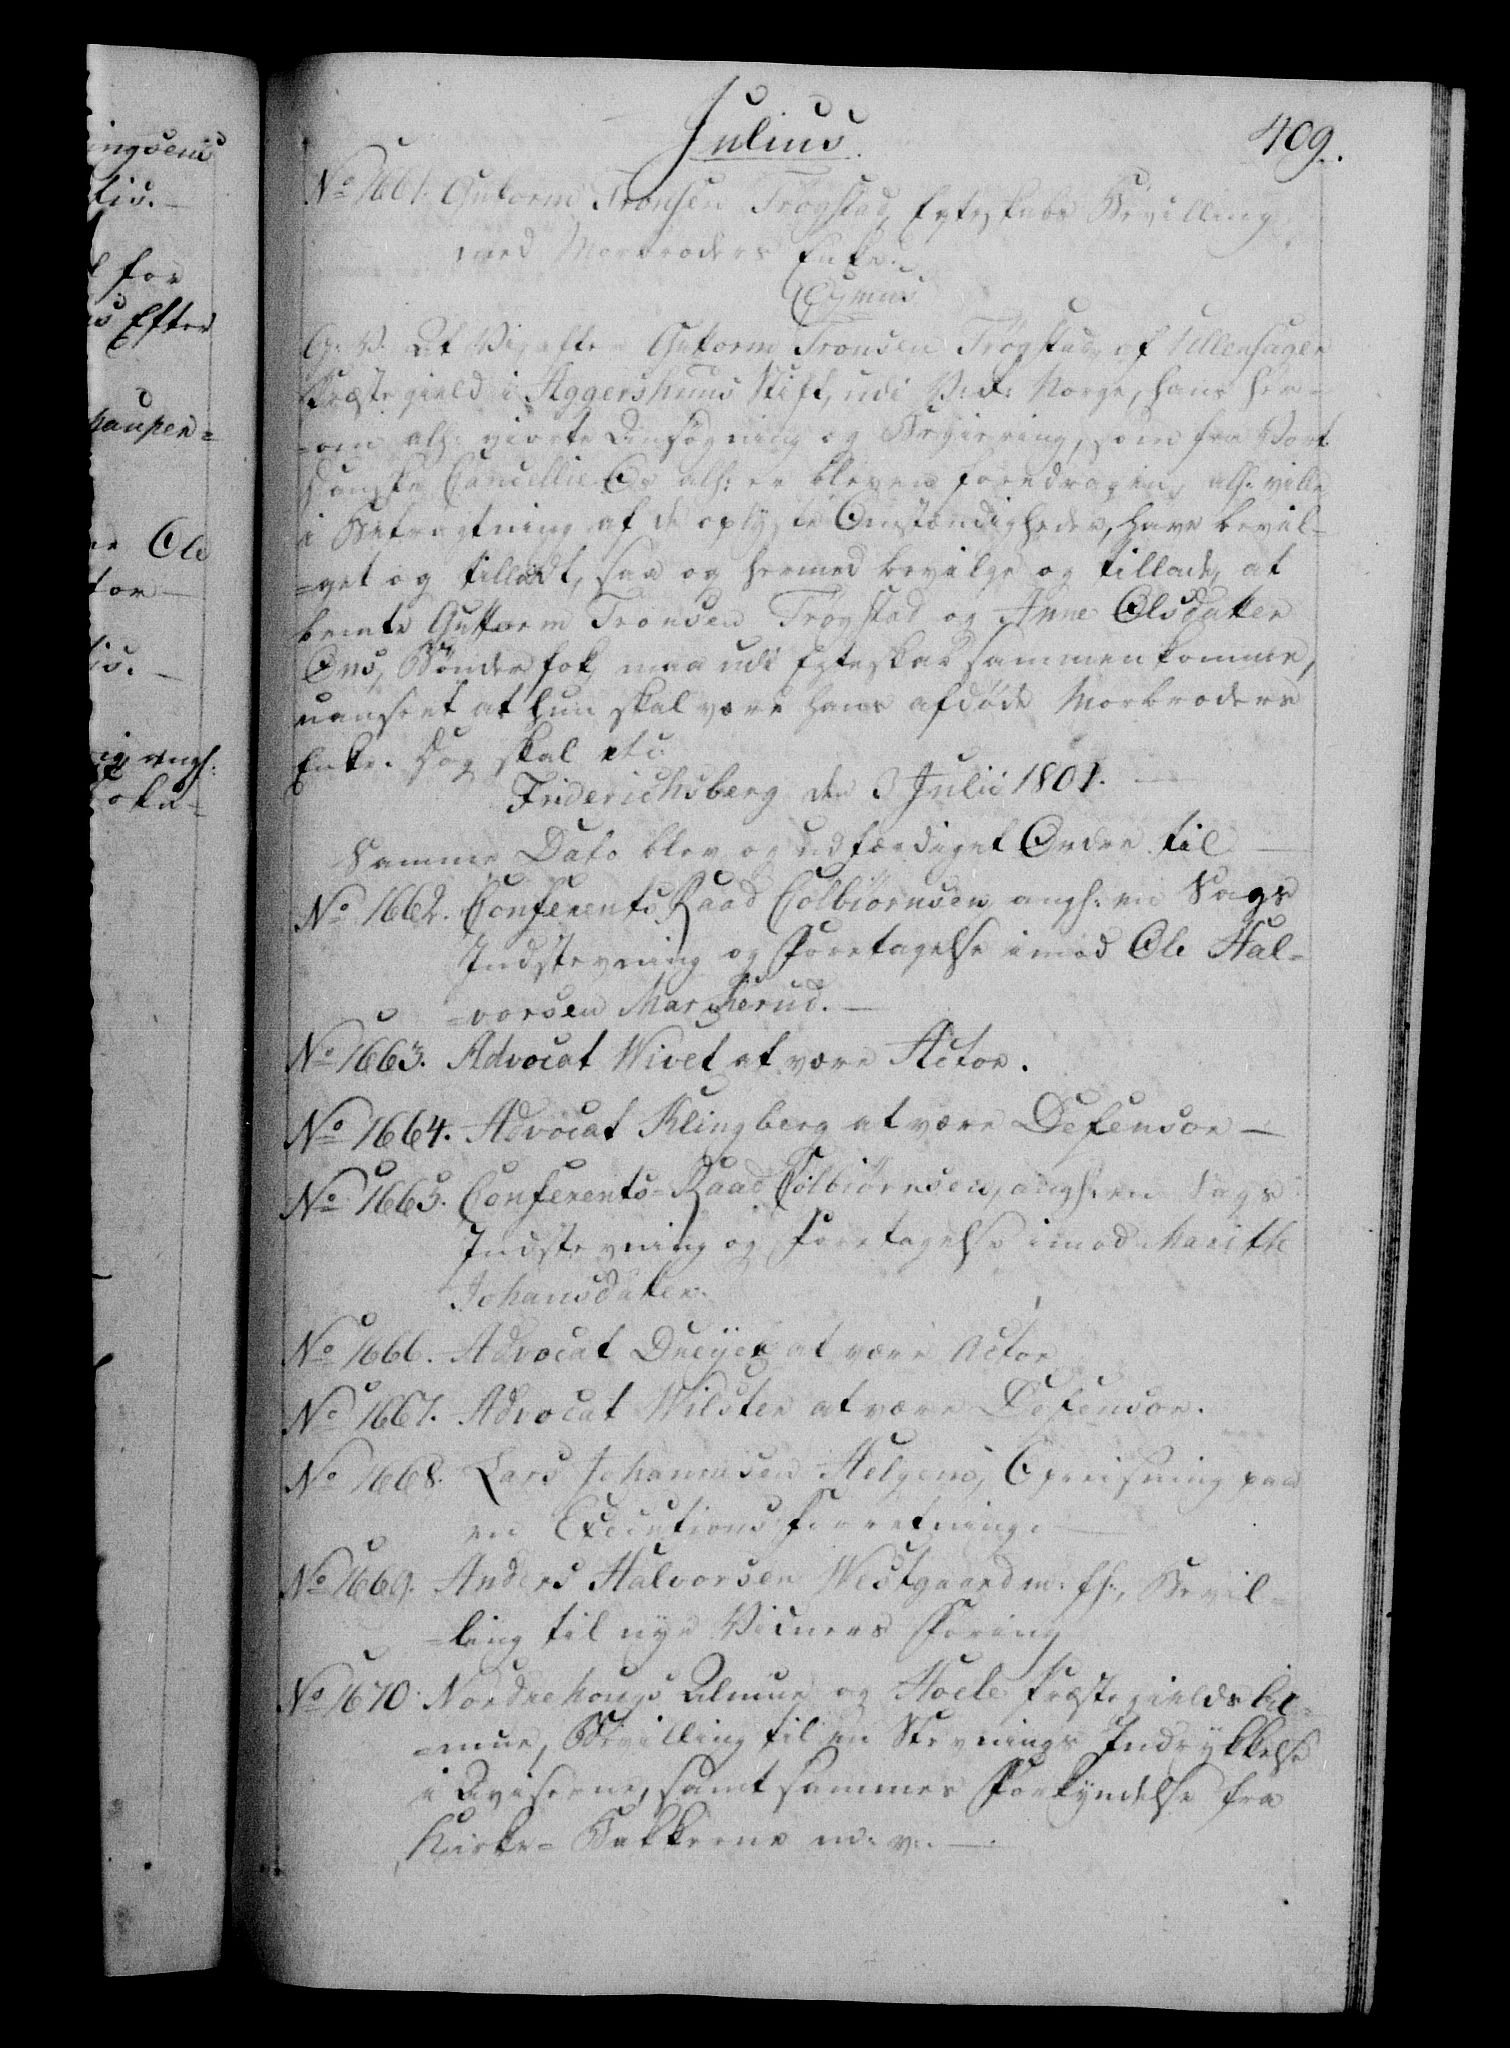 ingsens
tis.
for
Efter
haupen=
Ole
tor
tis.
angh:
Julius.
409.
No 1661. Guttorm Tronsen Trøgstad, Egteskabs Bevilling
med Morbroders Enke.
G: V: At Vi, efter Guttorm Tronsen Trøgstad, af Ullensager
Præstegield i Aggershuus Stift, udi V: R: Norge, hans her-
-om alh: giorte Ansøgning og Begiering, som fra Vort
danske Cancellie Os alh: er bleven foredragen, alh. ville
i Betragtning af de oplyste Omstændigheder, have bevil-
=get og tilladt, saa og hermed bevilge og tillade, at
bemte Guttorm Tronsen Trøgstad og Anne Olsdatter
Ons, Bønderfolk, maa udi Egteskab sammenkomme,
uanseet at hun skal være hans afdøde Morbroders
Enke. Dog skal etc:
Friderichsberg den 3 Julii 1801.
Samme Dato blev og udfærdiget Ordre til
No 1662. Conferents Raad Colbiørnsen, angh: en Sags
Indstevning og Foretagelse imod Ole Hal=
=vorsen Marcherud.
No 1663. Advocat Wivet at være Actor.
No 1664. Advocat Klingberg at være Defensor
No 1665. Conferents=Raad Colbiørnsen, angh: en Sags
Indstevning og Foretagelse imod Marithe
Johansdatter.
No 1666. Advocat Dreyer at være Actor
No 1667. Advocat Wilster at være Defensor.
No 1668. Lars Johannesen Helgens, Opreisning paa
en Executions Forretning.
No 1669. Anders Halvorsen Westgaard m: fh:, Bevil=
=ling til nye Vidners Føring
No 1670. Nordrehougs Almue og Hoele Præstegields Al=
=mue, Bevilling til en Stevnings Indrykkelse
i Aviserne, samt sammes Forkyndelse fra
Kirke=Bakkerne m: v:.